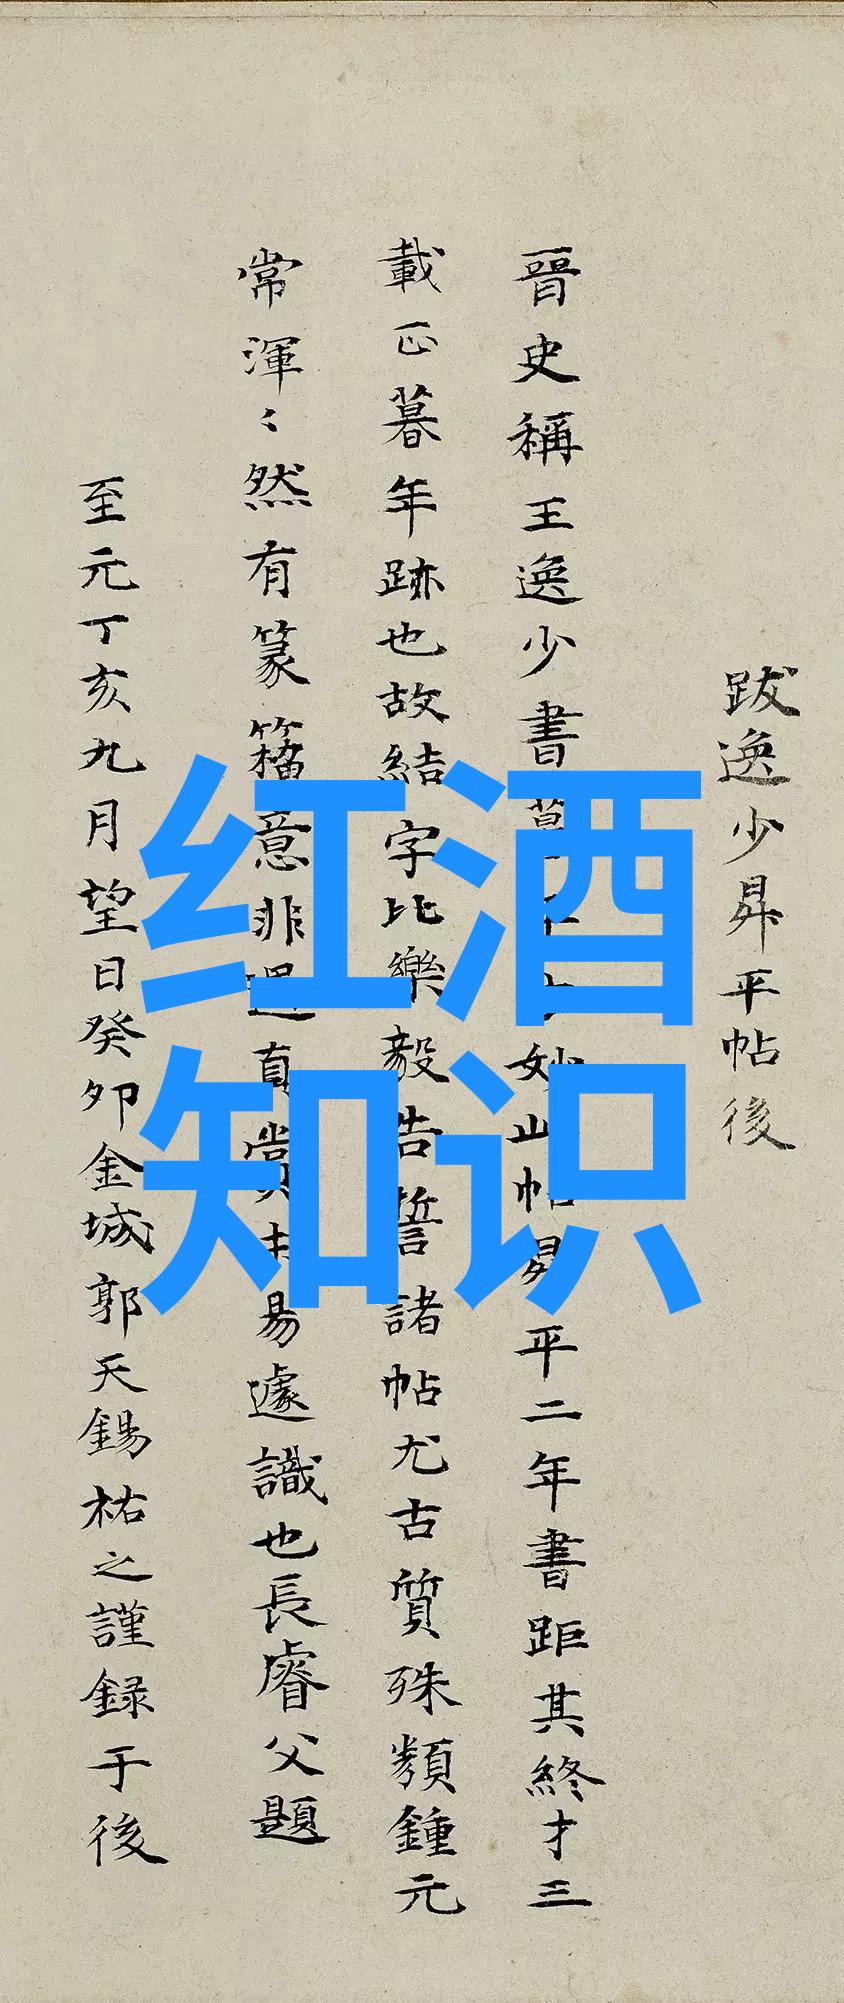 跋逸少昇平帖後
晉史稱王逸少書暮年方妙此帖昇平二年書距其終才三
載正暮年跡也故結字比樂毅告誓諸帖尤古質殊類鍾元
常渾〻然有篆籀意非遇真賞未易遽識也長睿父題
至元丁亥九月望日癸卯金城郭天錫祐之謹録于後
红酒
知识